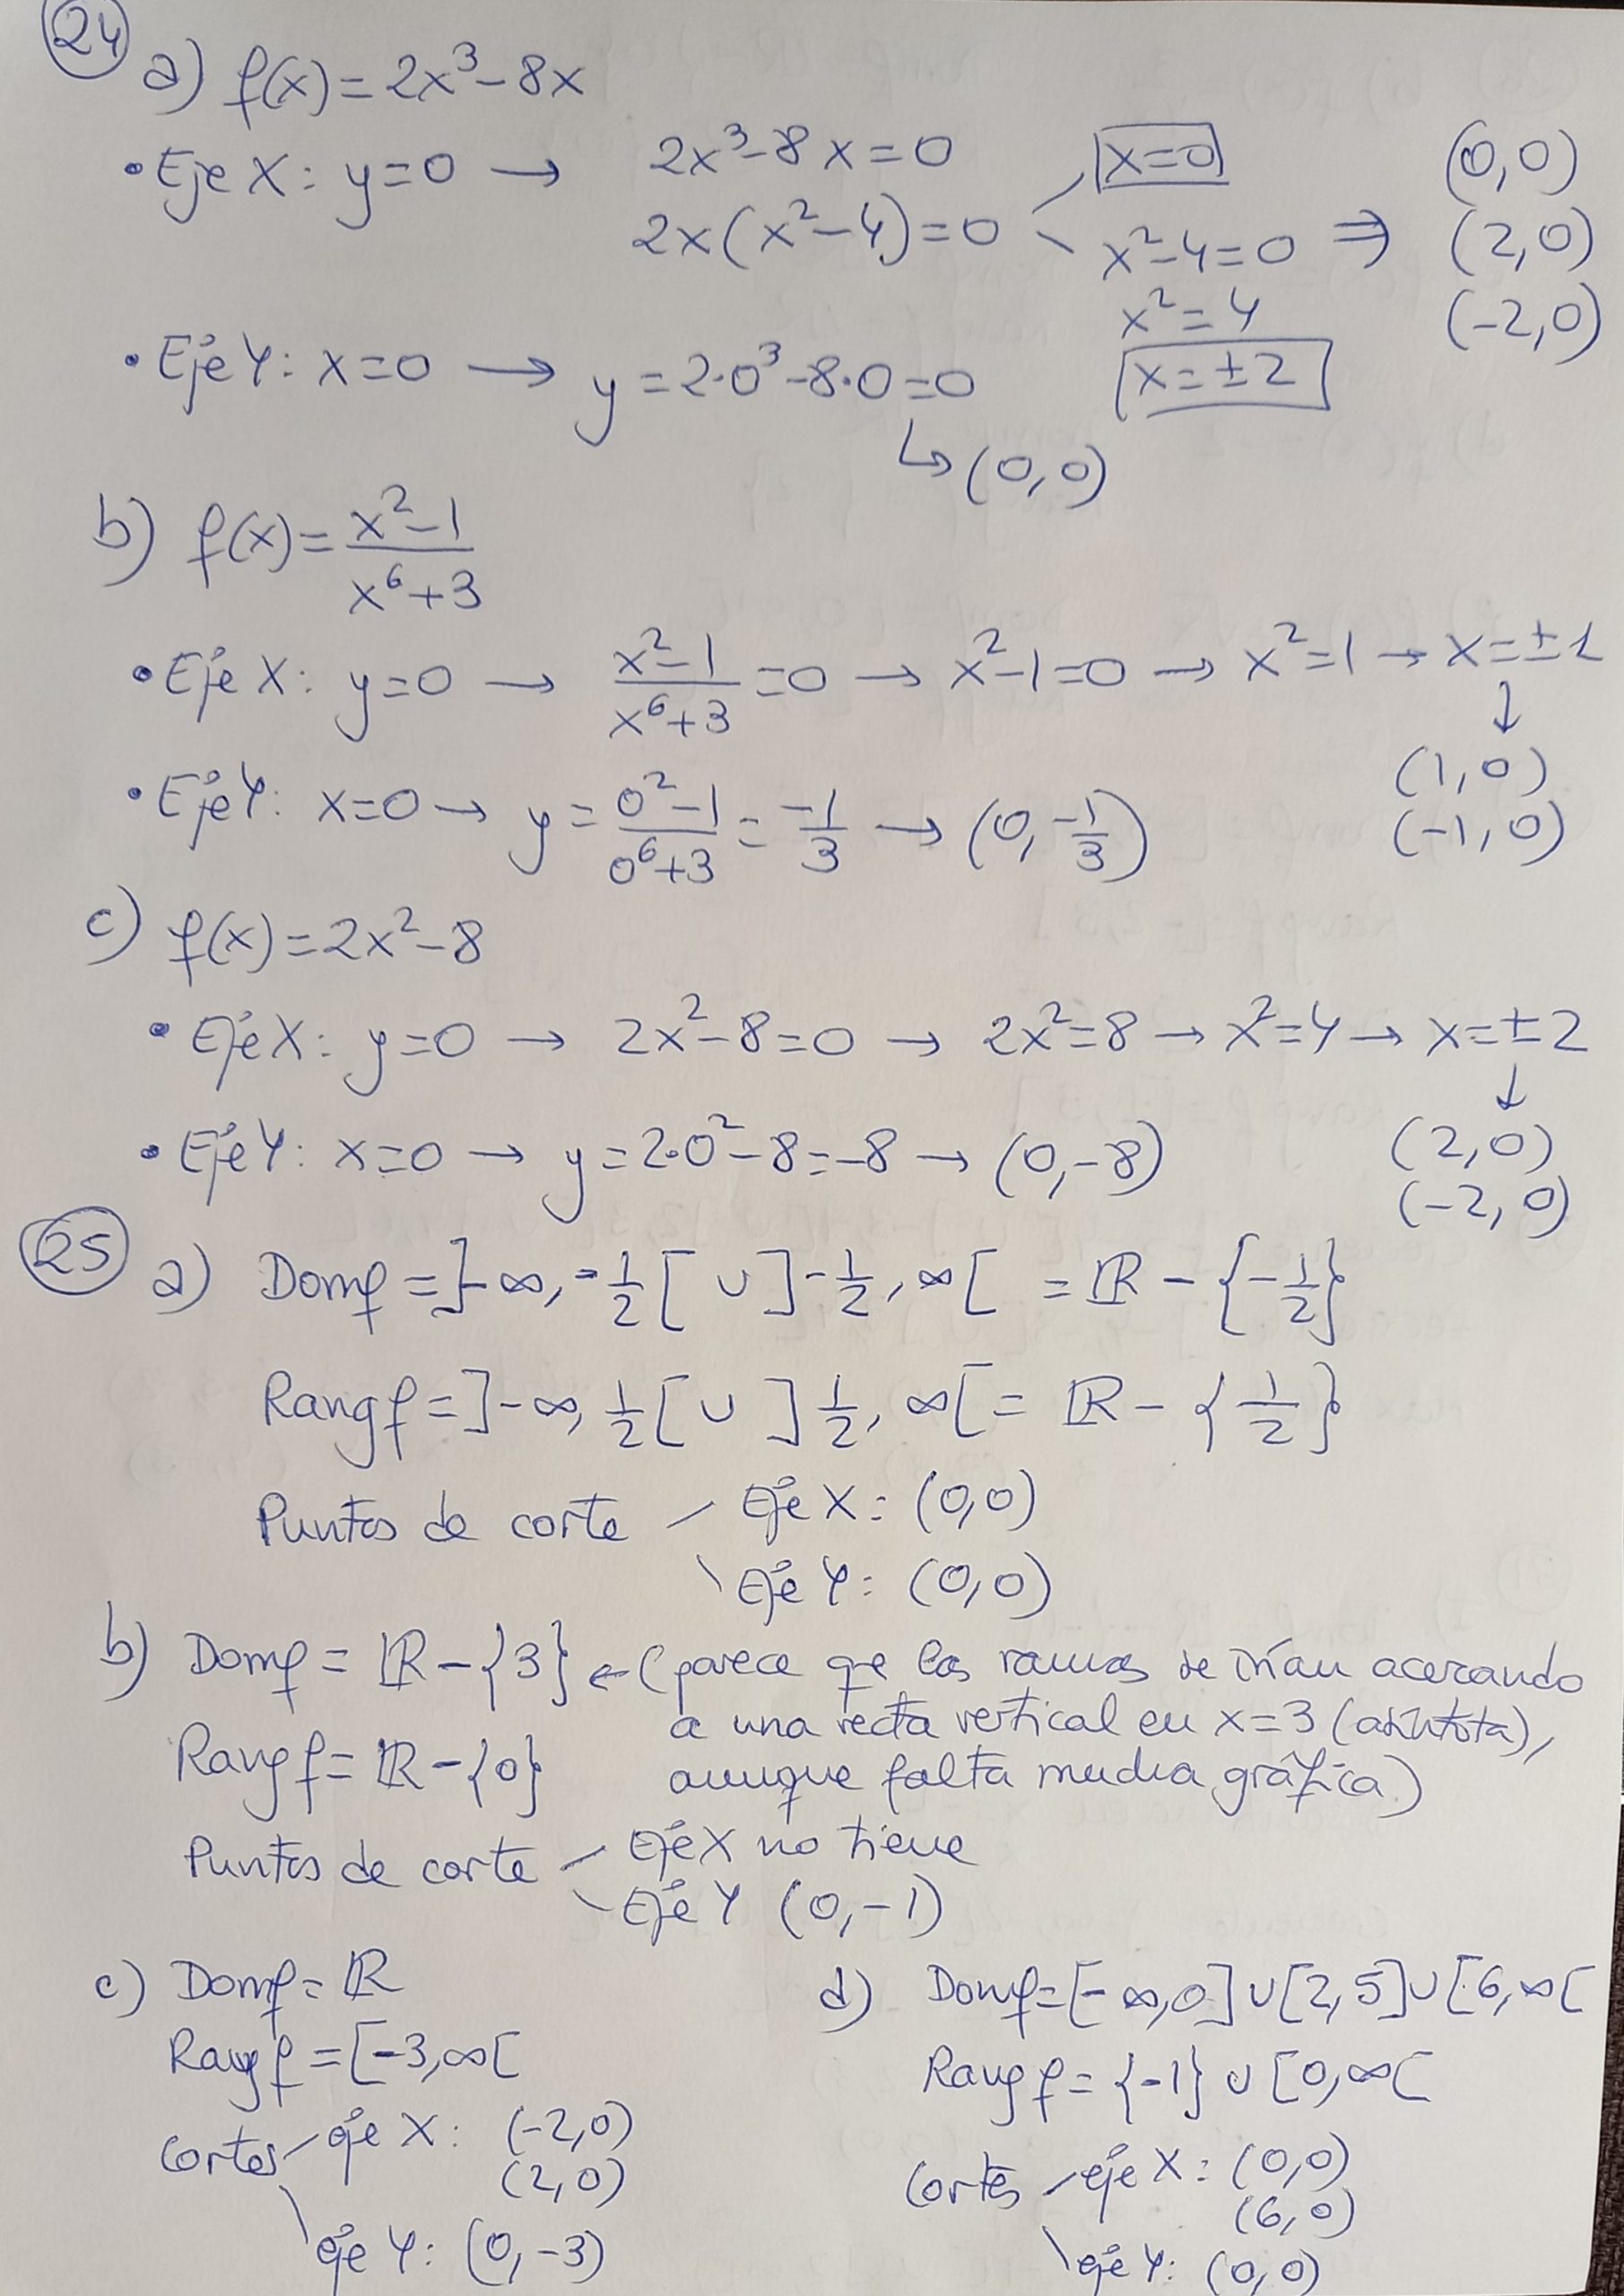 24
a) f(x)=2x³-8x
• Eje X: y=0 → 2x³-8x=0
2x(x²-4)=0
x=0
x²-4=0 ⇒
x²=4
x=±2
(0,0)
(2,0)
(-2,0)
• Eje Y: x=0 → y=2·0³-8·0=0
↳(0,0)
b) f(x)=(x²-1)/(x⁶+3)
• Eje X: y=0 → (x²-1)/(x⁶+3)=0 → x²-1=0 → x²=1 → x=±1
↓
(1,0)
(-1,0)
• Eje Y: x=0 → y=(0²-1)/(0⁶+3)=-1/3 → (0,-1/3)
c) f(x)=2x²-8
• Eje X: y=0 → 2x²-8=0 → 2x²=8 → x²=4 → x=±2
↓
(2,0)
(-2,0)
• Eje Y: x=0 → y=2·0²-8=-8 → (0,-8)
25
a) Domf=]-∞,-1/2[ ∪ ]-1/2,∞[ = ℝ-{-1/2}
Rangf=]-∞,1/2[ ∪ ]1/2,∞[ = ℝ-{1/2}
Puntos de corte
Eje X: (0,0)
Eje Y: (0,0)
b) Domf=ℝ-{3} ← (parece que las ramas se irían acercando
a una recta vertical en x=3 (asíntota),
aunque falta mucha gráfica)
Rangf=ℝ-{0}
Puntos de corte
Eje X no tiene
Eje Y (0,-1)
c) Domf=ℝ
Rangf=[-3,∞[
Cortes
eje X: (-2,0)
(2,0)
eje Y: (0,-3)
d) Domf=[-∞,0]∪[2,5]∪[6,∞[
Rangf={-1}∪[0,∞[
Cortes
eje X: (0,0)
(6,0)
eje Y: (0,0)